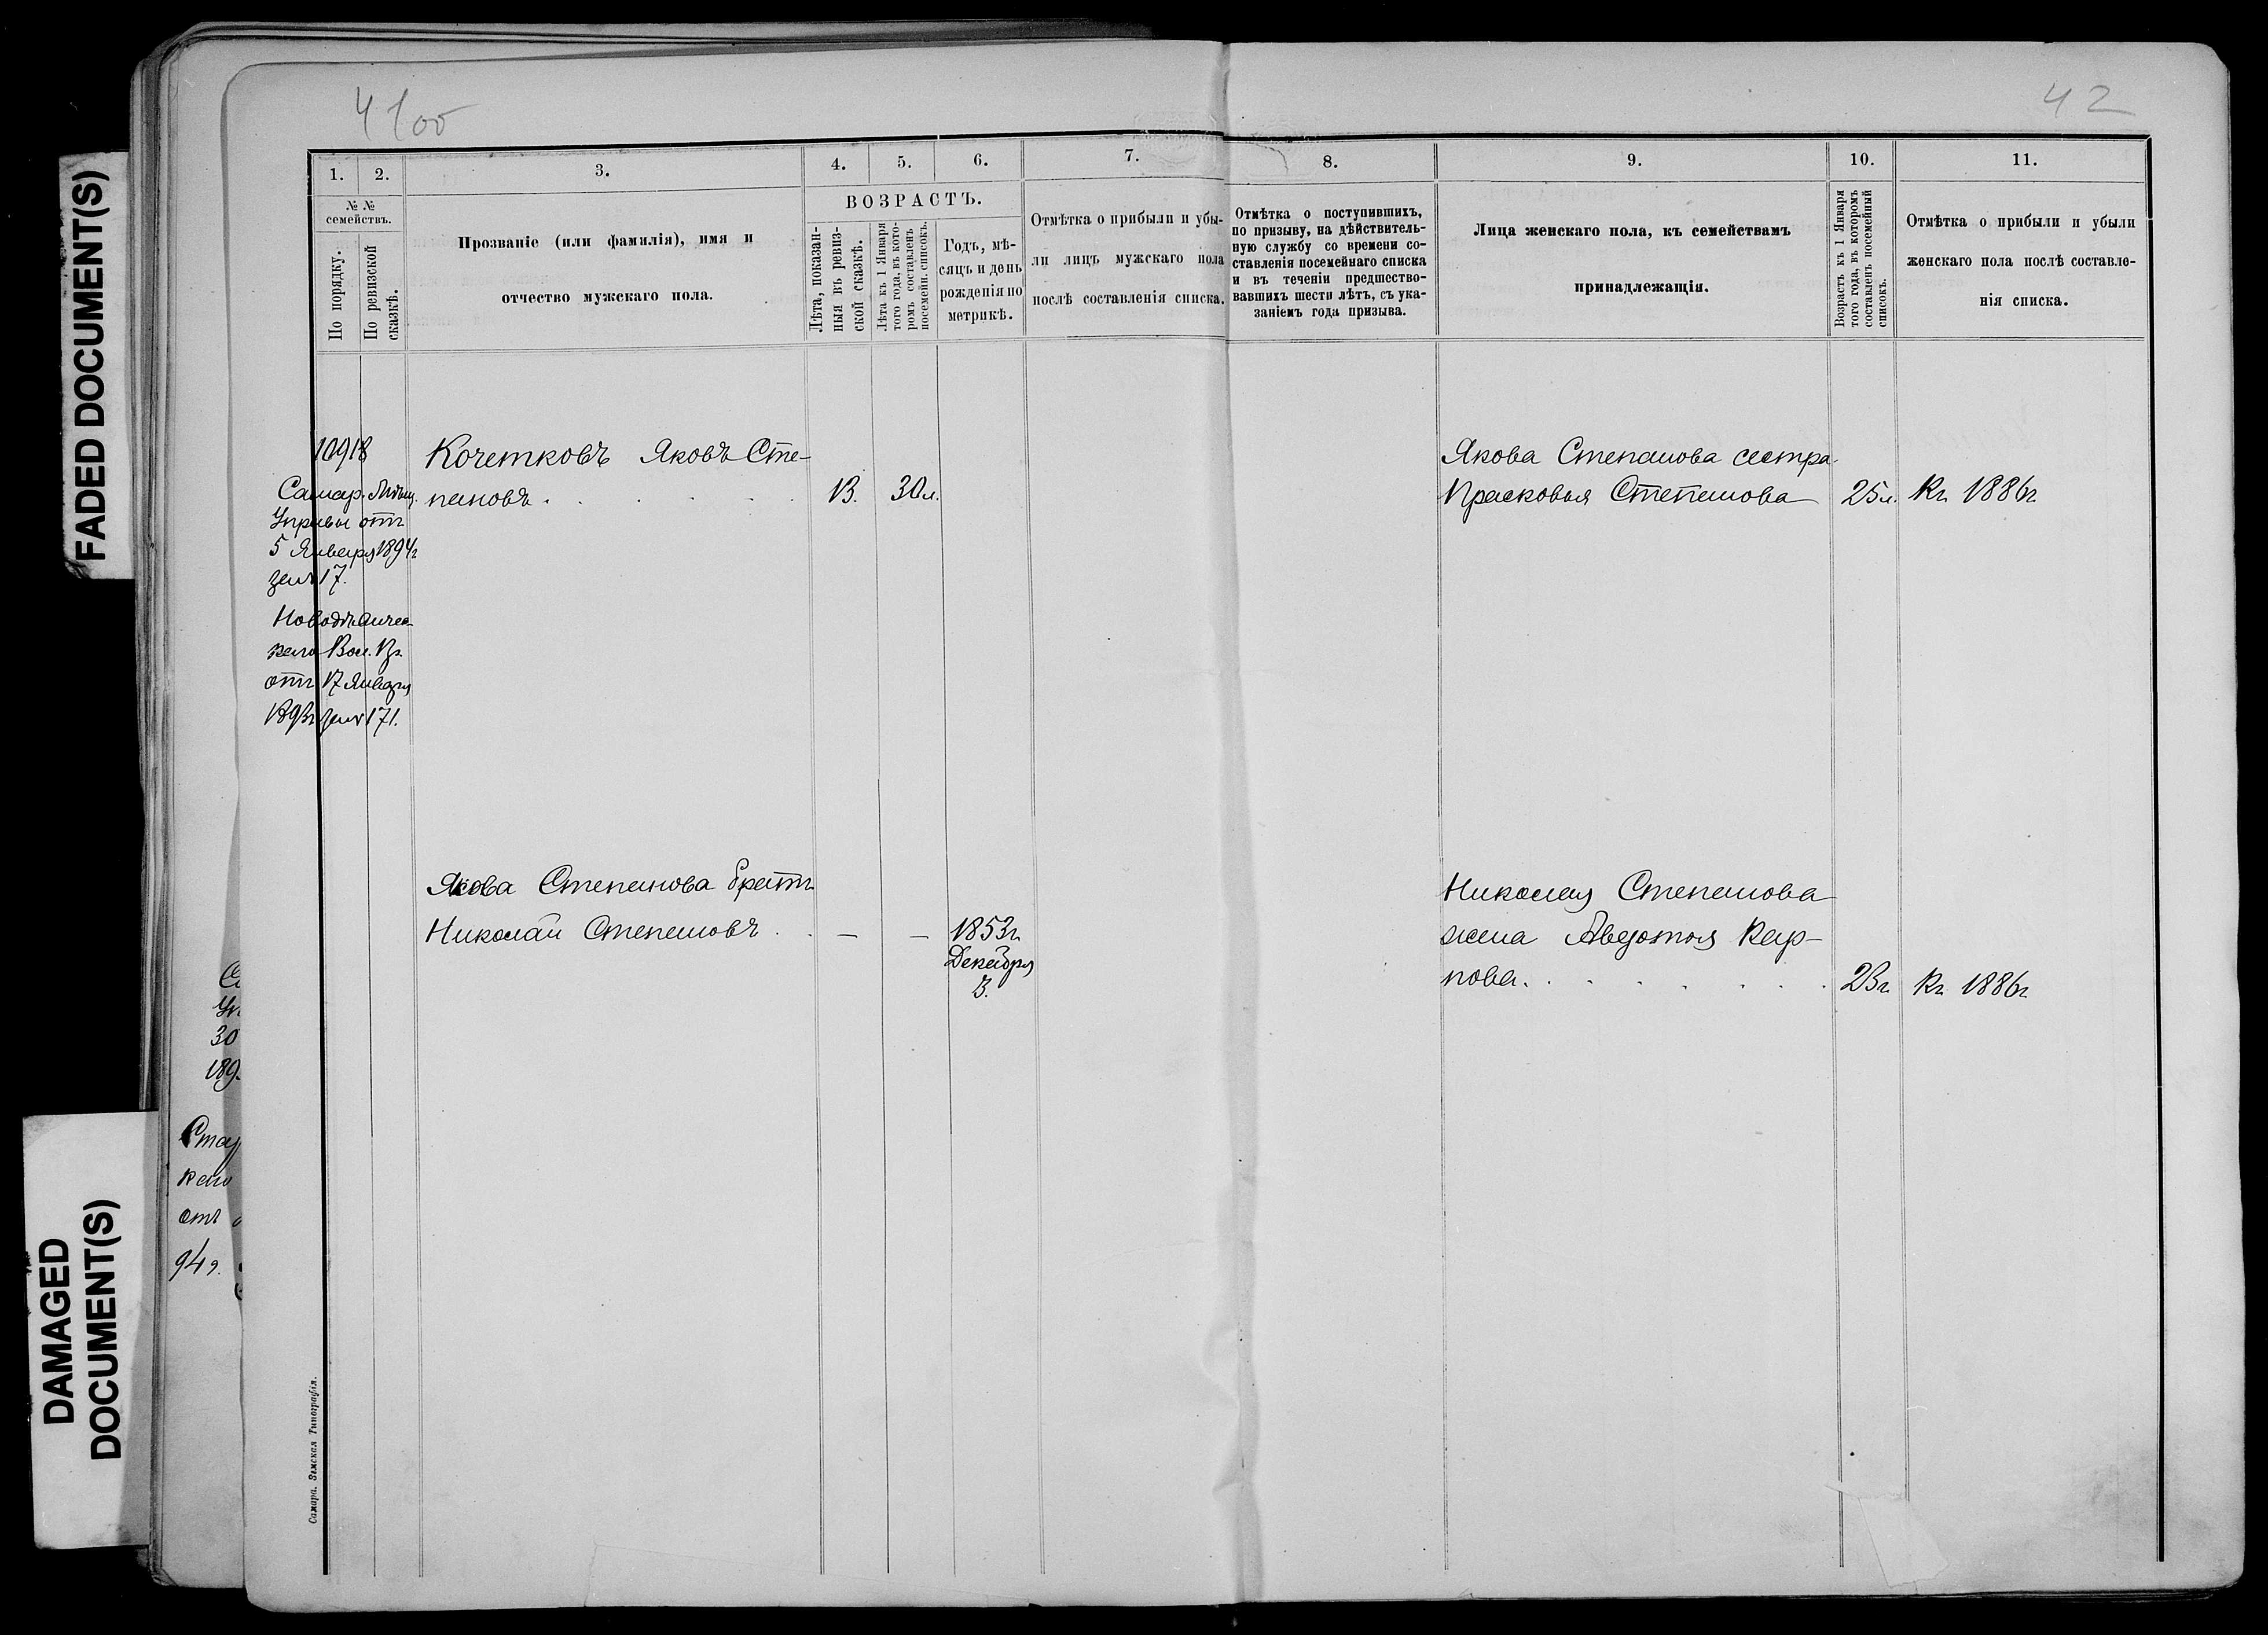 FADED DOCUMENT(S)
DAMAGED
DOCUMENT(S)
4100
42
1.
2.
3.
4.
5.
6.
7.
8.
9.
10.
11.
№ №
семействъ.
По порядку.
По ревизской
сказкѣ.
Прозваніе (или фамилія), имя и
отчество мужскаго пола.
ВОЗРАСТЪ.
Лѣта, показан-
ныя въ ревиз-
ской сказкѣ.
Лѣта къ 1 Января
того года, въ кото-
ромъ составленъ
посемейн. списокъ.
Годъ, мѣ-
сяцъ и день
рожденія по
метрикѣ.
Отмѣтка о прибыли и убы-
ли лицъ мужскаго пола
послѣ составленія списка.
Отмѣтка о поступившихъ,
по призыву, на дѣйствитель-
ную службу со времени со-
ставленія посемейнаго списка
и въ теченіи предшество-
вавшихъ шести лѣтъ, съ ука-
заніемъ года призыва.
Лица женскаго пола, къ семействамъ
принадлежащія.
Возрастъ къ 1 Января
того года, въ которомъ
составленъ посемейный
списокъ.
Отмѣтка о прибыли и убыли
женскаго пола послѣ составле-
нія списка.
10918
Кочетковъ Яковъ Сте-
пановъ . . . . . 13. 30 л.
Самар. Мѣщ.
Управы отъ
5 Января 1894г
за № 17.
отъ 17 Января
за № 171.
Якова Степанова сестра
Прасковья Степанова 25 л. Къ 1886г
Якова Степанова братъ
Николай Степановъ . . — — 1853г.
Декабря
3.
Николая Степанова
жена Авдотья Кар-
пова. . . . . . . 23г Къ 1886г
Ст
30
189
каго
отъ
94 г.
Самара. Земская Типографія.